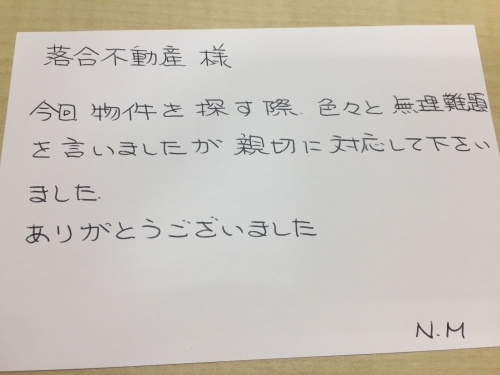 落合不動産 様
今回 物件を 探す際、色々と 無理難題
を言いましたが 親切に 対応して下さい
ました.
ありがとうございました
N.M